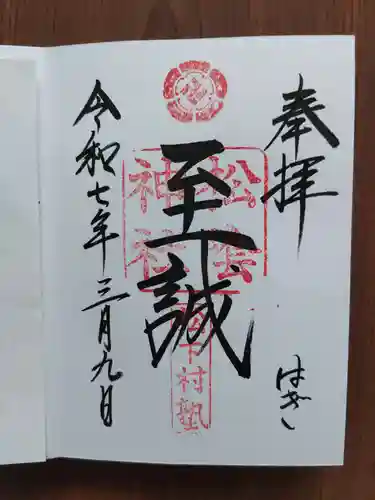 奉拝
はぎし
松陰
神社
至誠
松下村塾
令和七年三月九日